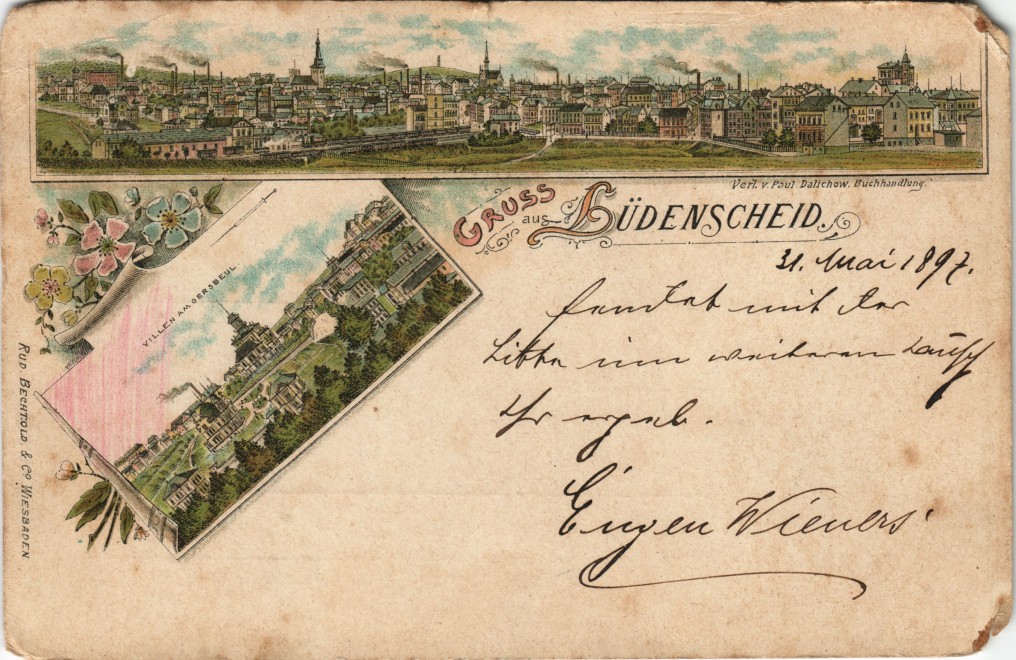 Verl. v. Paul Dalichow, Buchhandlung.
GRUSS aus LÜDENSCHEID.
VILLEN AM OERSBEUL
31. Mai 1897.
sendet mit der
Bitte um weiteren Tausch
Ihr ergeb.
Eugen Wieners
RUD. BECHTOLD & Co WIESBADEN.